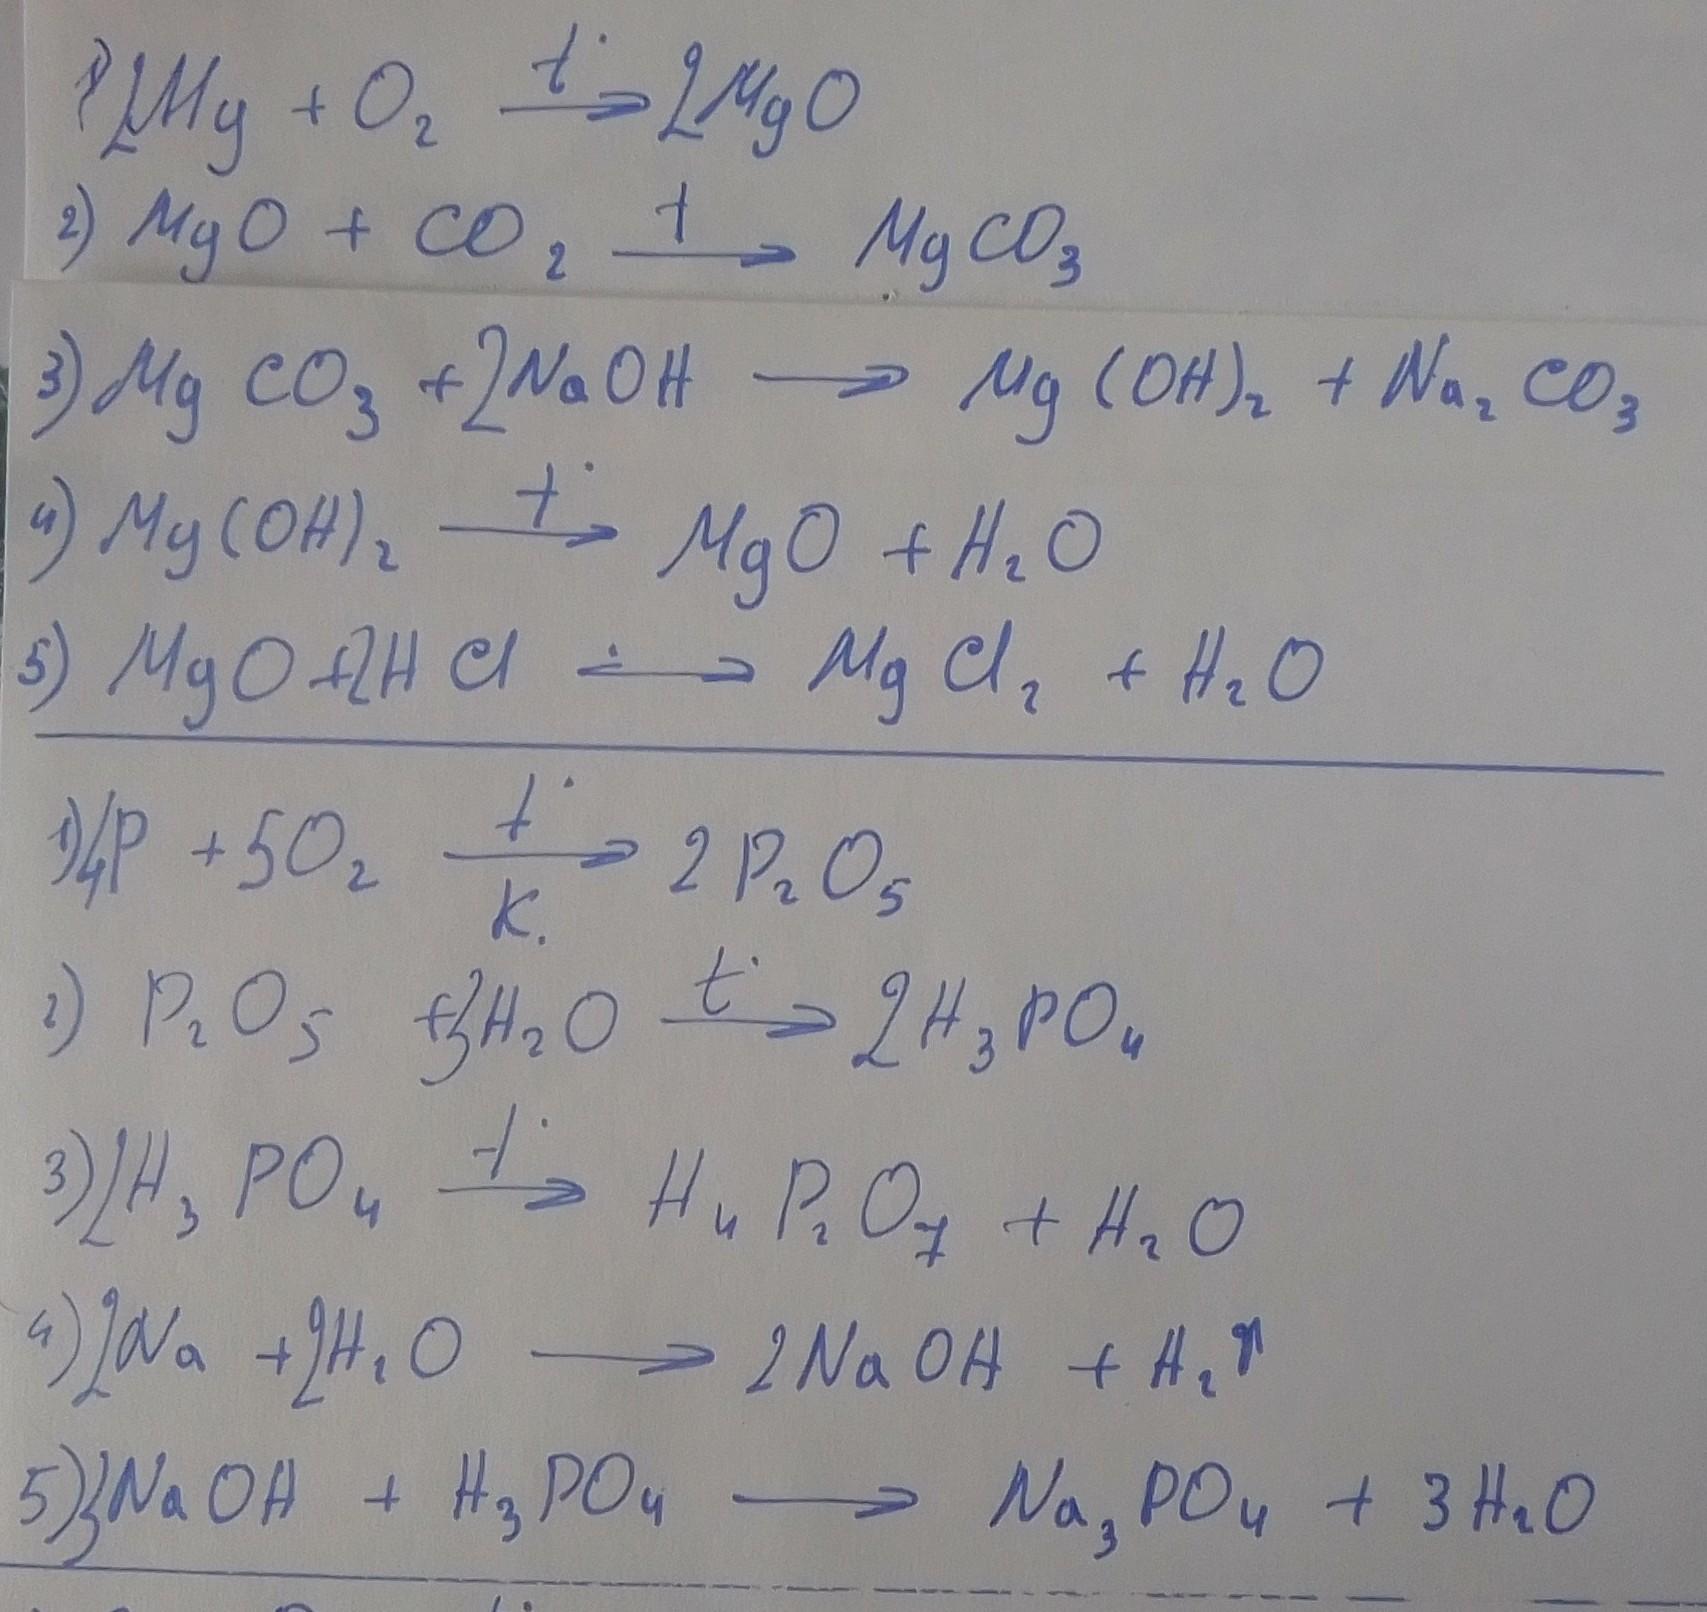 1) 2Mg + O₂ t° → 2MgO
2) MgO + CO₂ t → MgCO₃
3) MgCO₃ + 2NaOH → Mg(OH)₂ + Na₂CO₃
4) Mg(OH)₂ t° → MgO + H₂O
5) MgO + 2HCl → MgCl₂ + H₂O
1) 4P + 5O₂ t° → к. 2P₂O₅
2) P₂O₅ + 3H₂O t° → 2H₃PO₄
3) 2H₃PO₄ t° → H₄P₂O₇ + H₂O
4) 2Na + 2H₂O → 2NaOH + H₂↑
5) 3NaOH + H₃PO₄ → Na₃PO₄ + 3H₂O